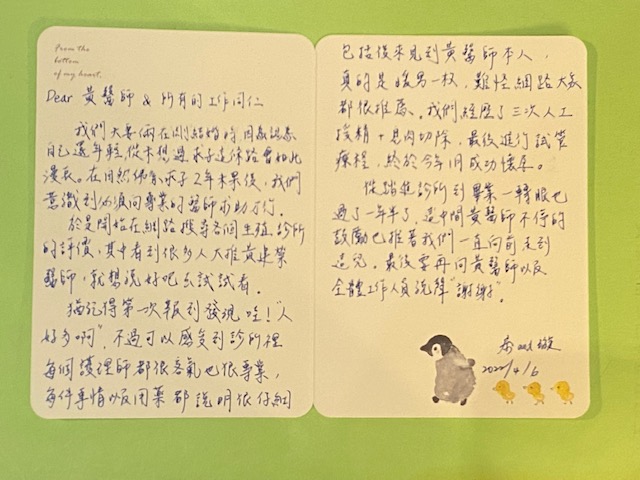 From the
bottom
of my heart.
Dear 黃醫師 & 所有的工作同仁
我們夫妻倆在剛結婚時因為認為
自己還年輕,從未想過求子這條路會如此
漫長。在自然備孕求子2年未果後,我們
意識到必須向專業的醫師求助才行。
於是開始在網路搜尋各個生殖診所
的評價,其中看到很多人大推黃建榮
醫師,就想說好吧去試試看。
猶記得第一次報到發現哇!"人
好多啊",不過可以感受到診所裡
每個護理師都很客氣也很專業,
每件事情以及用藥都說明很仔細
包括後來見到黃醫師本人,
真的是暖男一枚,難怪網路大家
都很推薦。我們經歷了三次人工
授精+息肉切除,最後進行試管
療程,終於今年1月成功懷孕。
從踏進診所到畢業一轉眼也
過了一年半了,這中間黃醫師不停的
鼓勵也推著我們一直向前走到
這兒,最後要再向黃醫師以及
全體工作人員說聲"謝謝"。
and 璇
2022/4/6